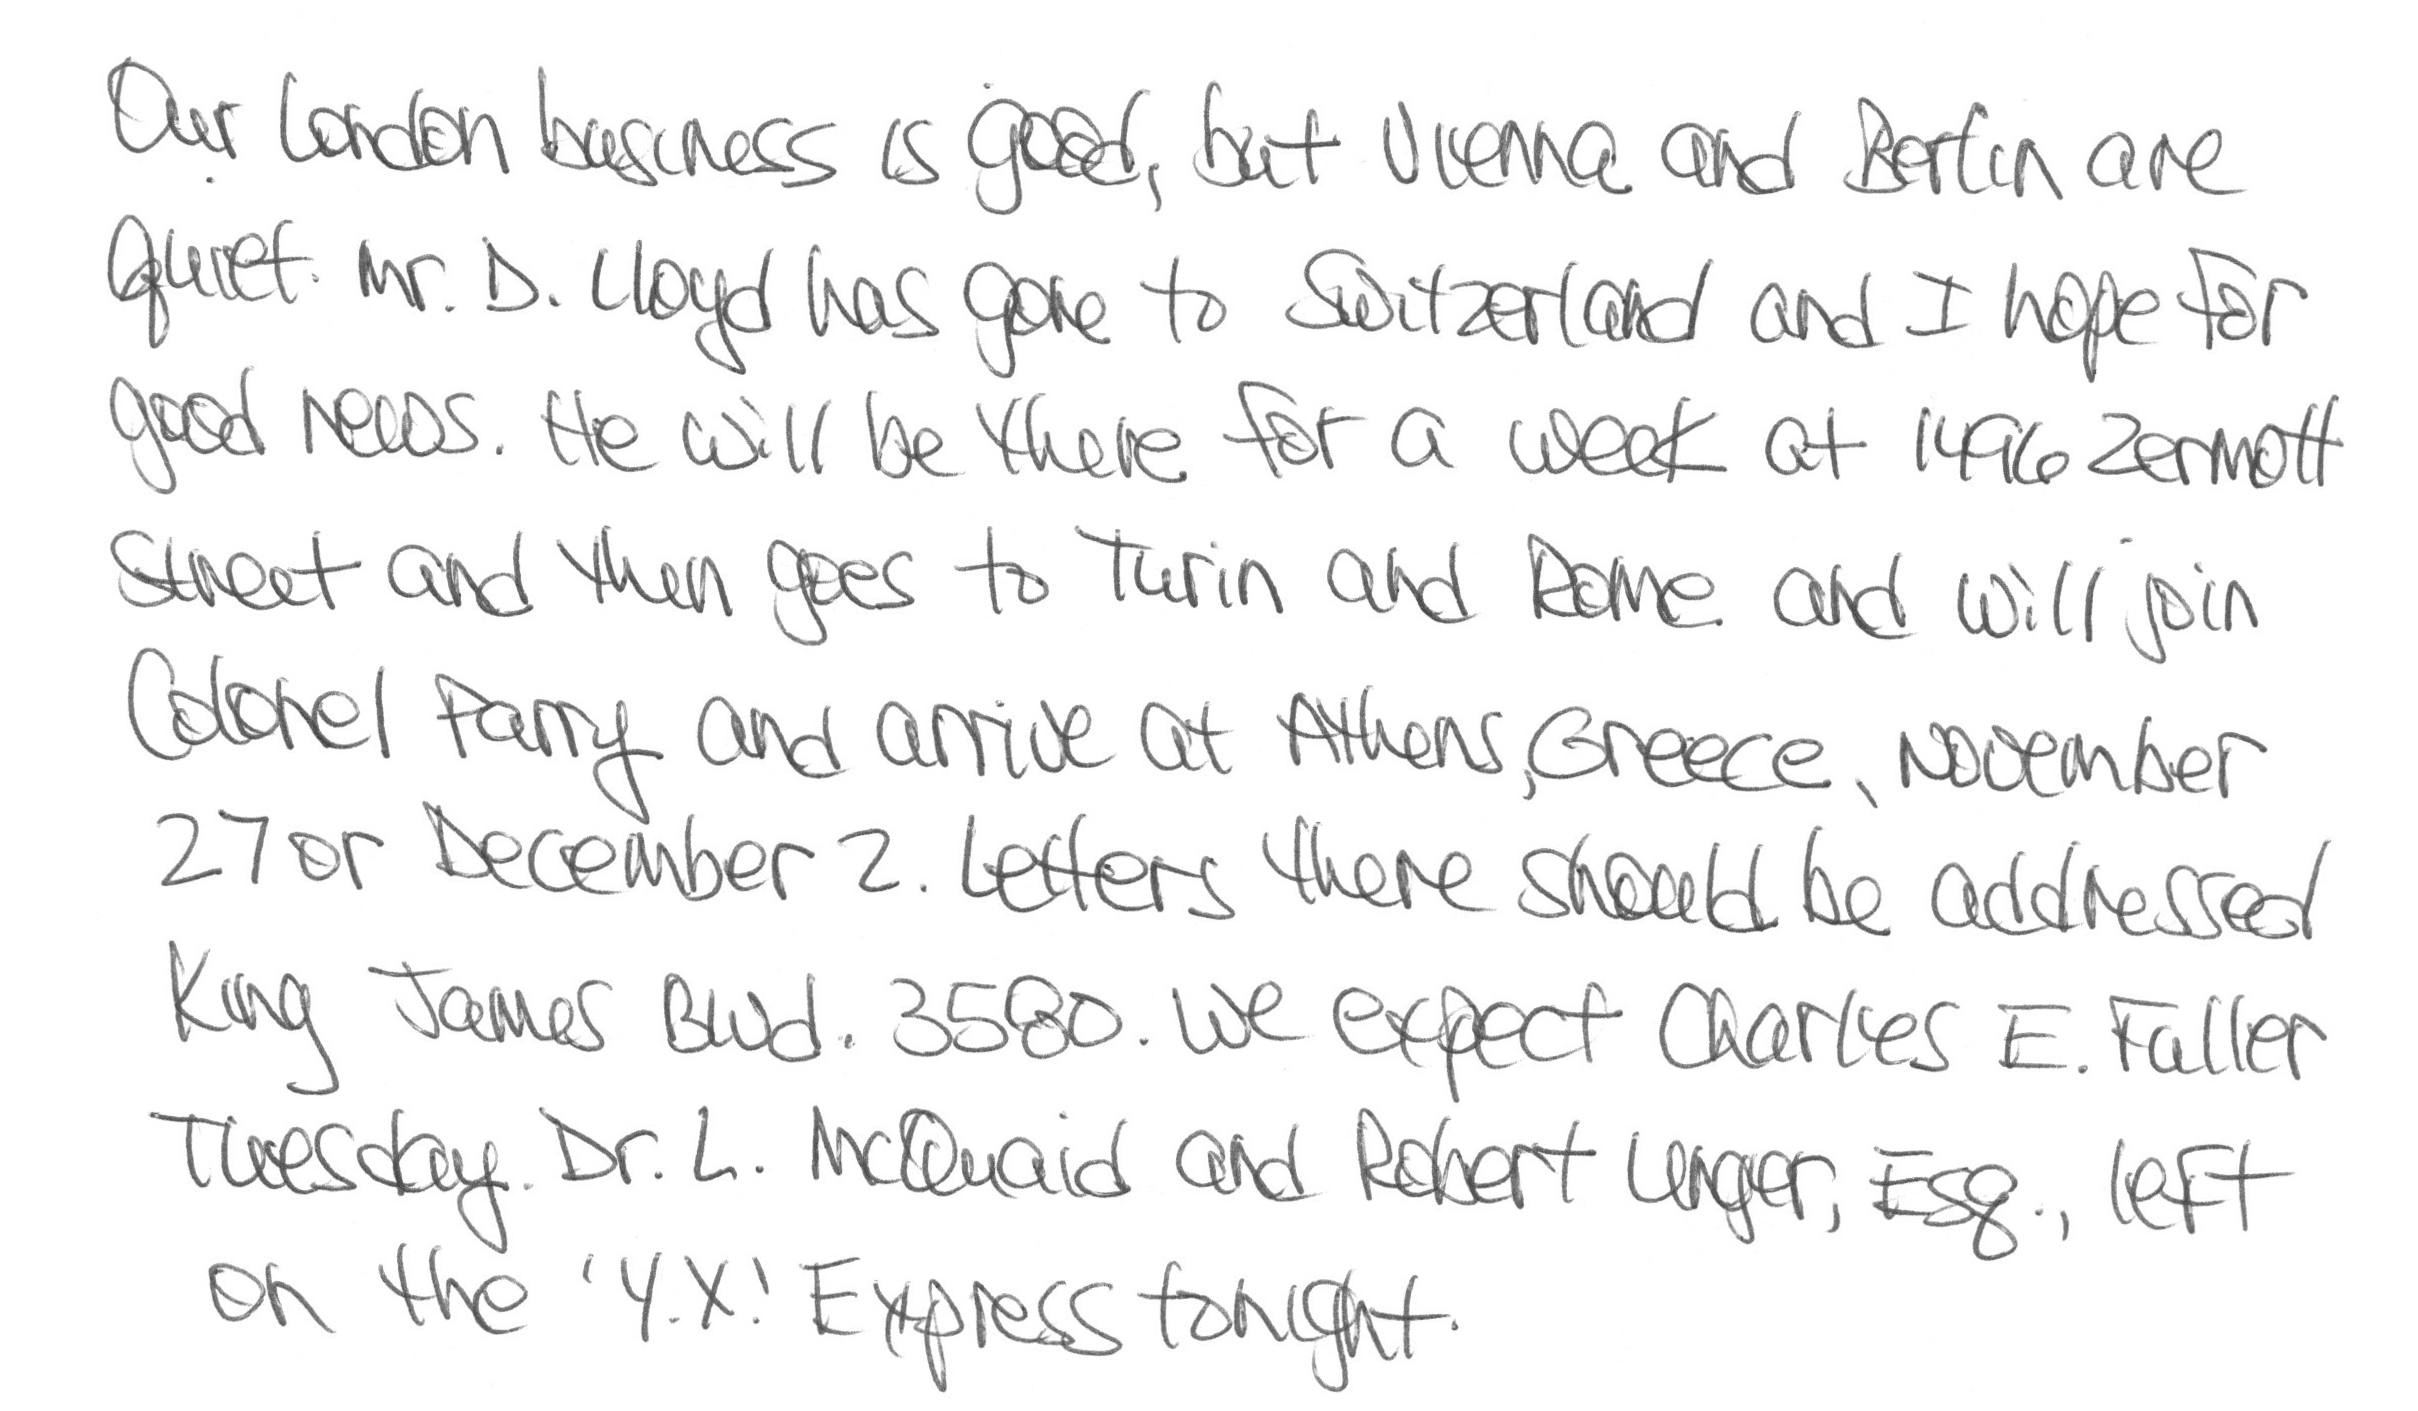 Our London business is good, but Vienna and Berlin are
quiet. Mr. D. Lloyd has gone to Switzerland and I hope for
good news. He will be there for a week at 1496 Zermott
Street and then goes to Turin and Rome and will join
Colonel Parry and arrive at Athens, Greece, November
27 or December 2. Letters there should be addressed
King James Blvd. 3580. We expect Charles E. Fuller
Tuesday. Dr. L. McQuaid and Robert Unger, Esq., left
on the 'Y.X.' Express tonight.